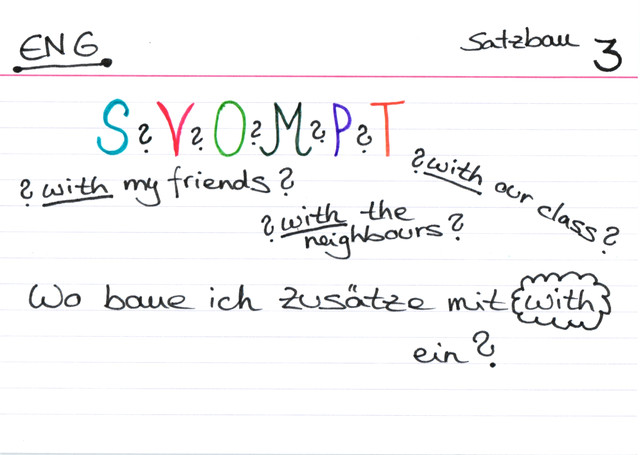 ENG
Satzbau 3
S?V?O?M?P?T
? with my friends ?
? with our class ?
? with the
neighbours ?
Wo baue ich zusätze mit with
ein?